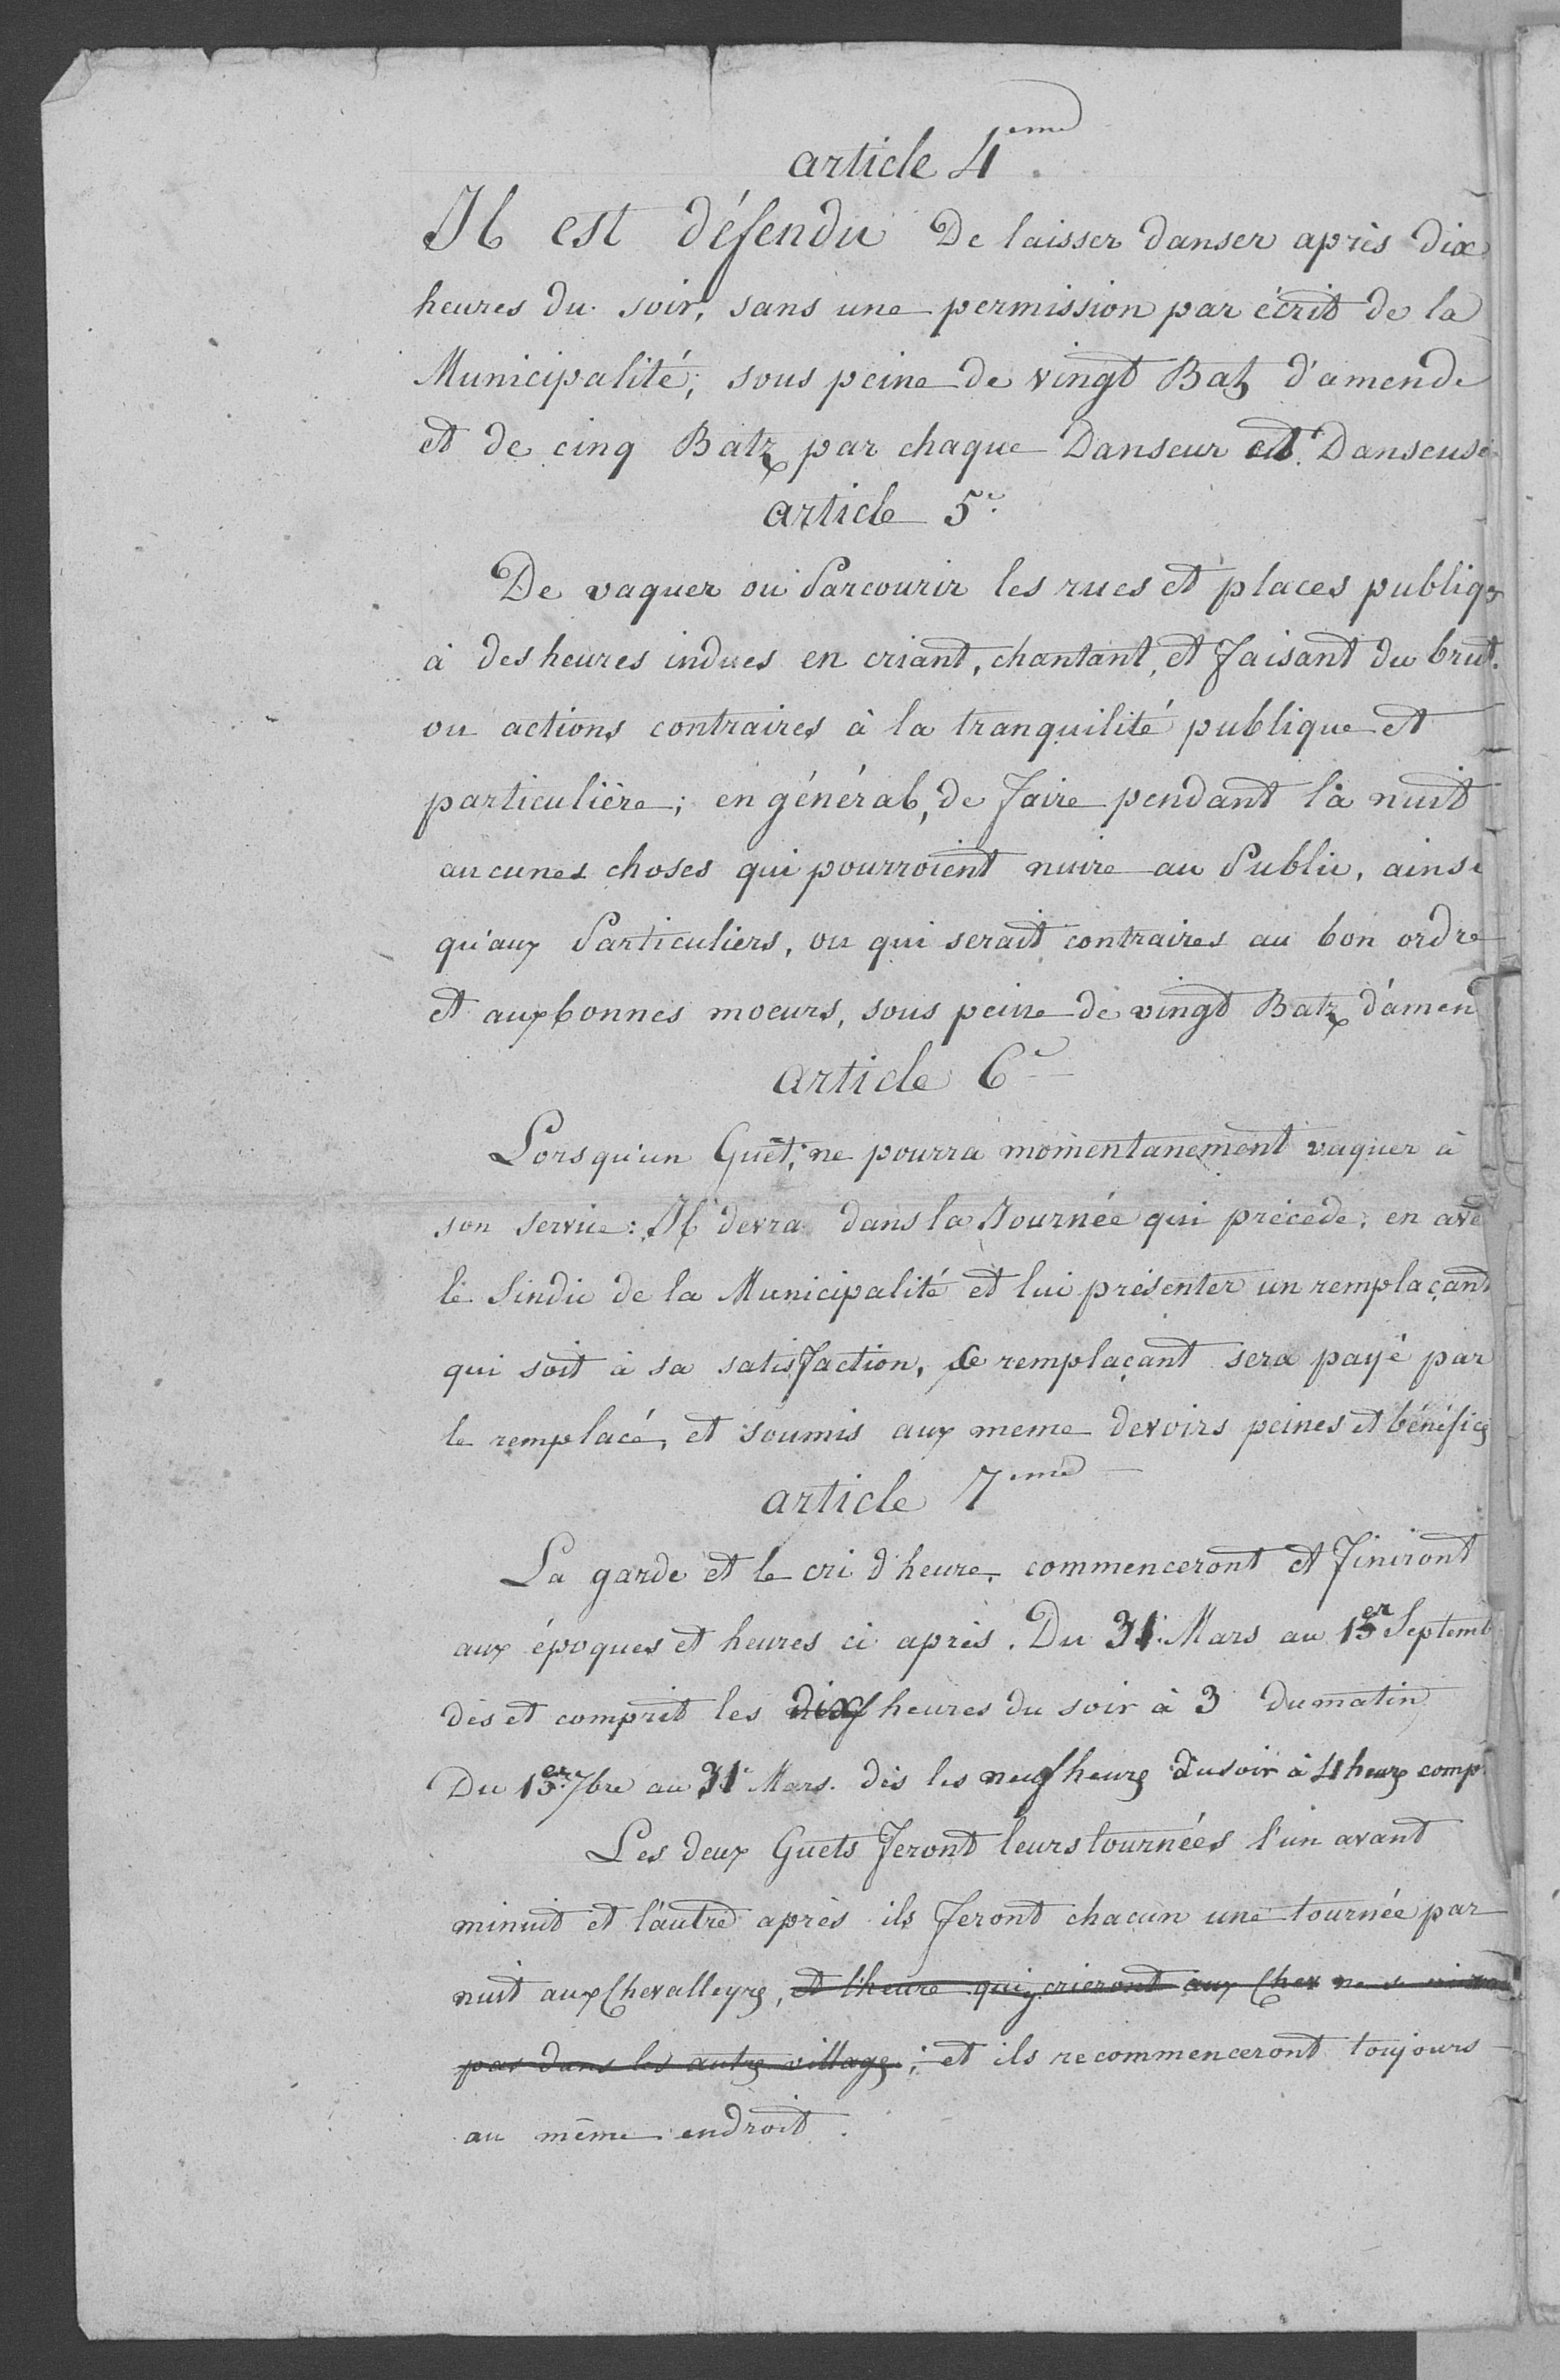 article 4eme.
Il est défendu De laisser danser après dix
heures du soir, sans une permission par écrit de la
Municipalité; sous peine de vingt Batz d'amende
et de cinq Batz par chaque Danseur et Danseuse
article 5e.
De vaquer ou Parcourir les rues et places publiqs
à des heures indues en criant, chantant, et faisant du bruit.
ou actions contraires à la tranquilité publique et
particulière; en général, de faire pendant la nuit
aucunes choses qui pourroient nuire au Public, ainsi
qu'aux Particuliers, ou qui serait contraires au bon ordre
et aux bonnes moeurs, sous peine de vingt Batz d'amen
article 6e
Lorsqu'un Guet, ne pourra momentanement vaquer à
son service: Il devra dans la Journée qui précede, en ave
le Sindic de la Municipalité et lui présenter un remplaçant
qui soit à sa satisfaction, ce remplaçant sera payé par
le remplacé, et soumis aux meme devoirs peines et bénéfices
article 7eme
La garde et le cri d'heure, commenceront et finiront
aux époques et heures ci après. Du 31. Mars au 1er Septemb
dès et comprit les dix heures du soir à 3 du matin
Du 1er 7bre au 31e Mars. dès les neuf heures du soir à 4 heures comp
Les deux Guets feront leurs tournées l'un avant
minuit et l'autre après ils feront chacun une tournée par
nuit aux Chevalleyres, et l'heure qui y crieront aux Chev ne se
pas dans les autres villages; et ils recommenceront toujours
au même endroit.